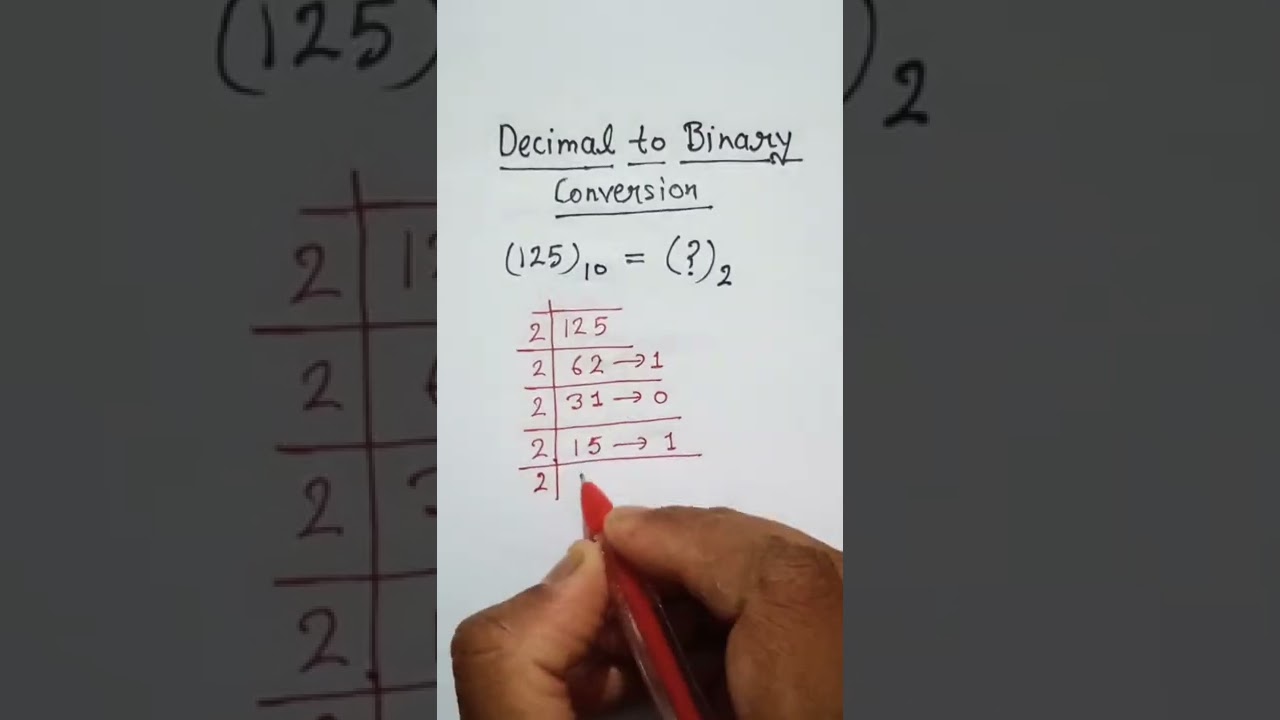 Decimal to Binary
Conversion
(125)10 = (?)2
2 125
2 62 → 1
2 31 → 0
2 15 → 1
2